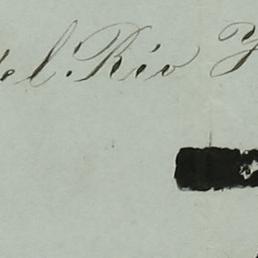 del. Rio Y